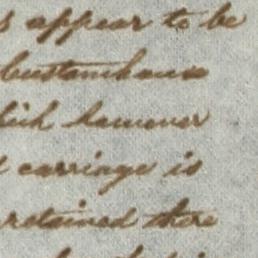 s appear to be
Customhouse
which however
carriage is
retained there